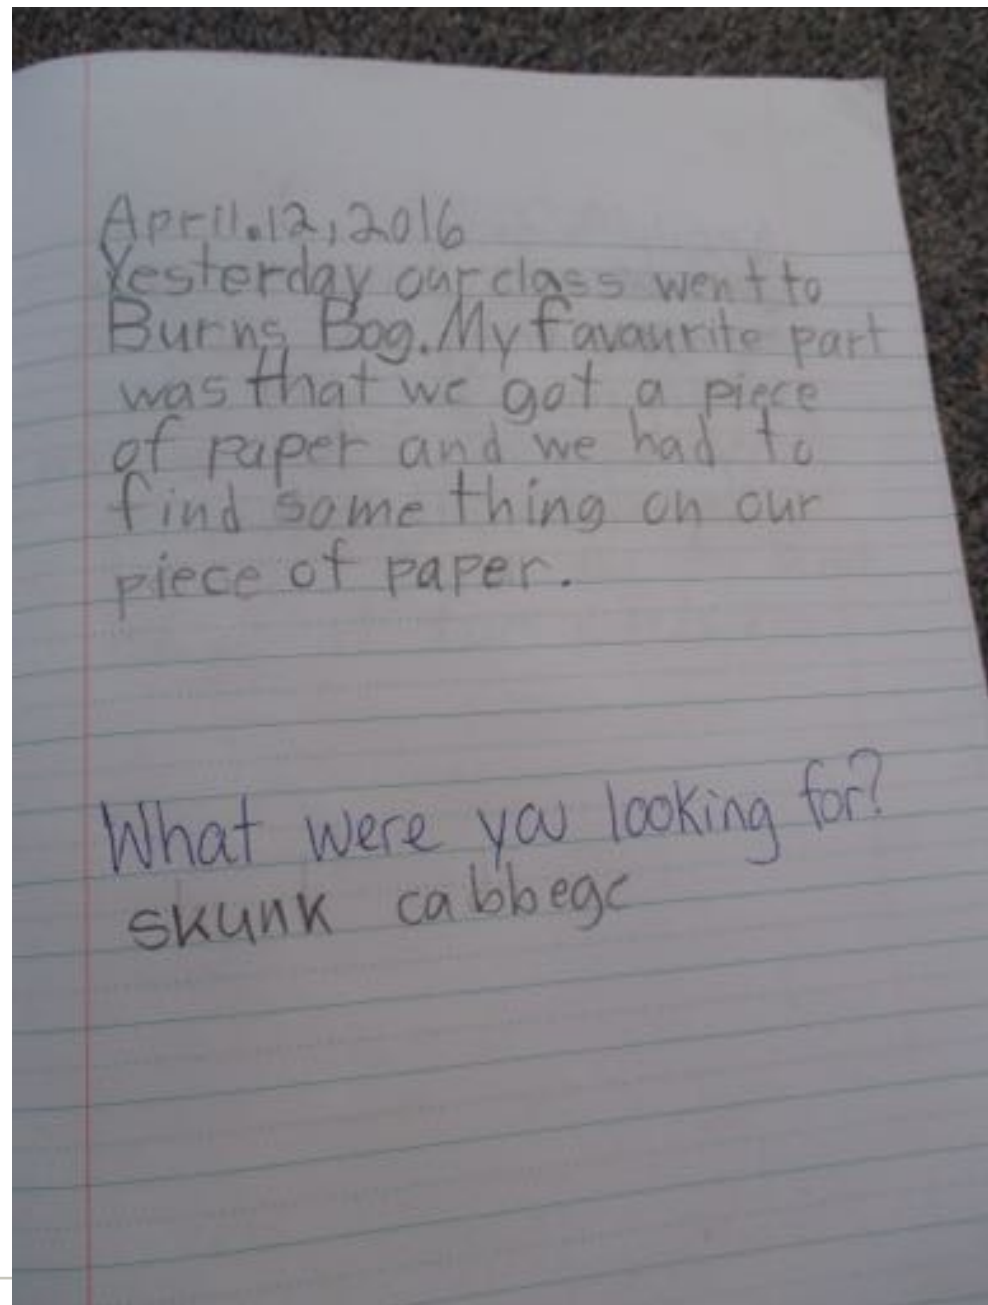 April.12,2016
Yesterday our class went to
Burns Bog. My favaurite part
was that we got a piece
of paper and we had to
find some thing on our
piece of paper.
What were you looking for?
skunk cabbege